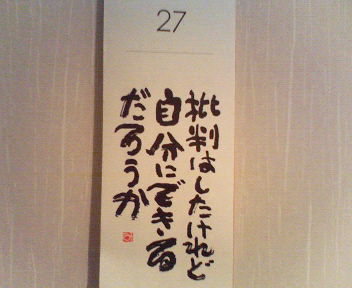 27
批判はしたけれど
自分にできる
だろうか